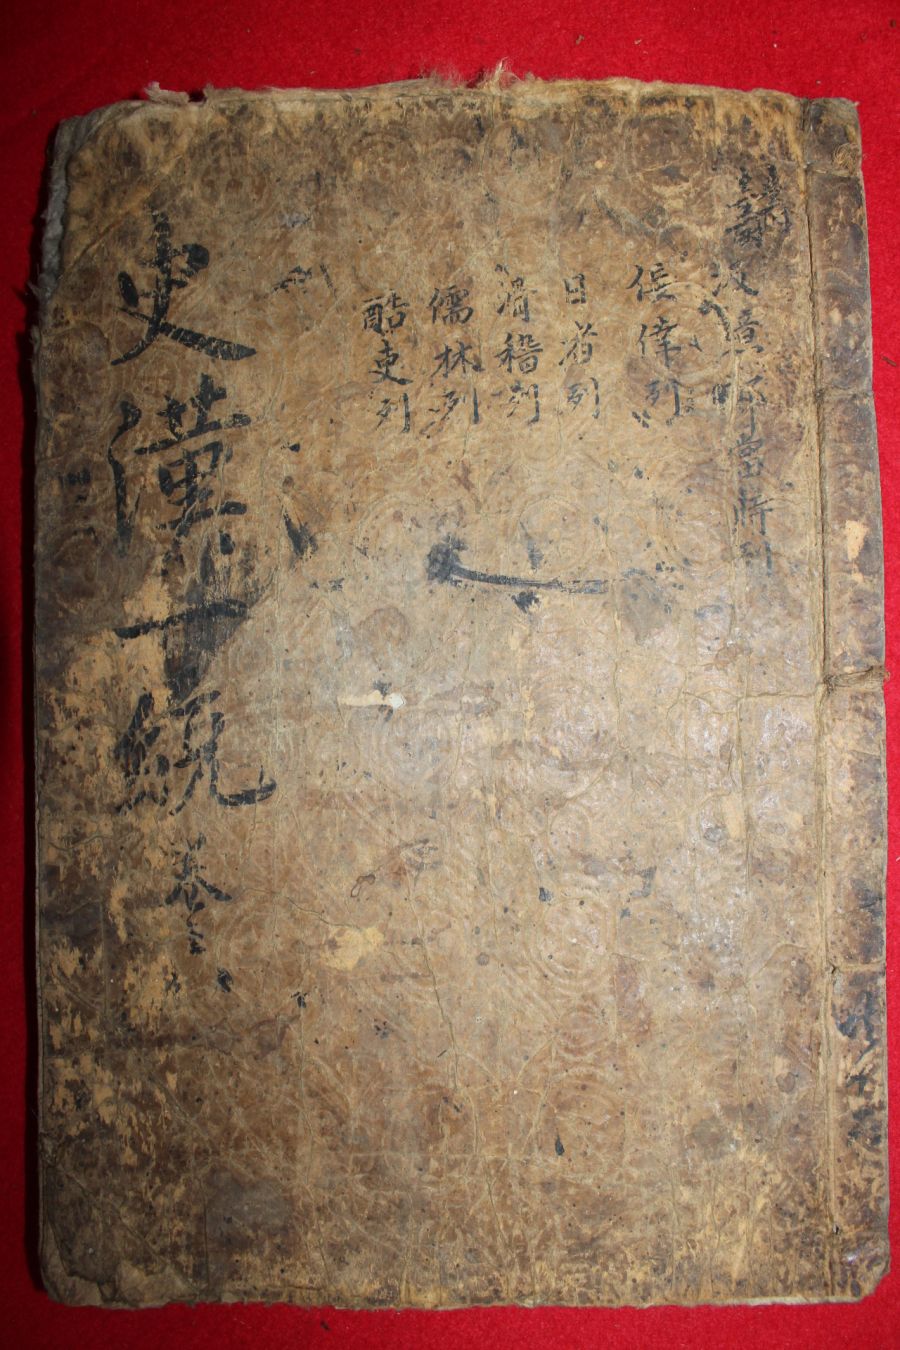 汲鄭當時列
侫倖列
日者列
滑稽列
儒林列
酷吏列
史漢一統
卷之